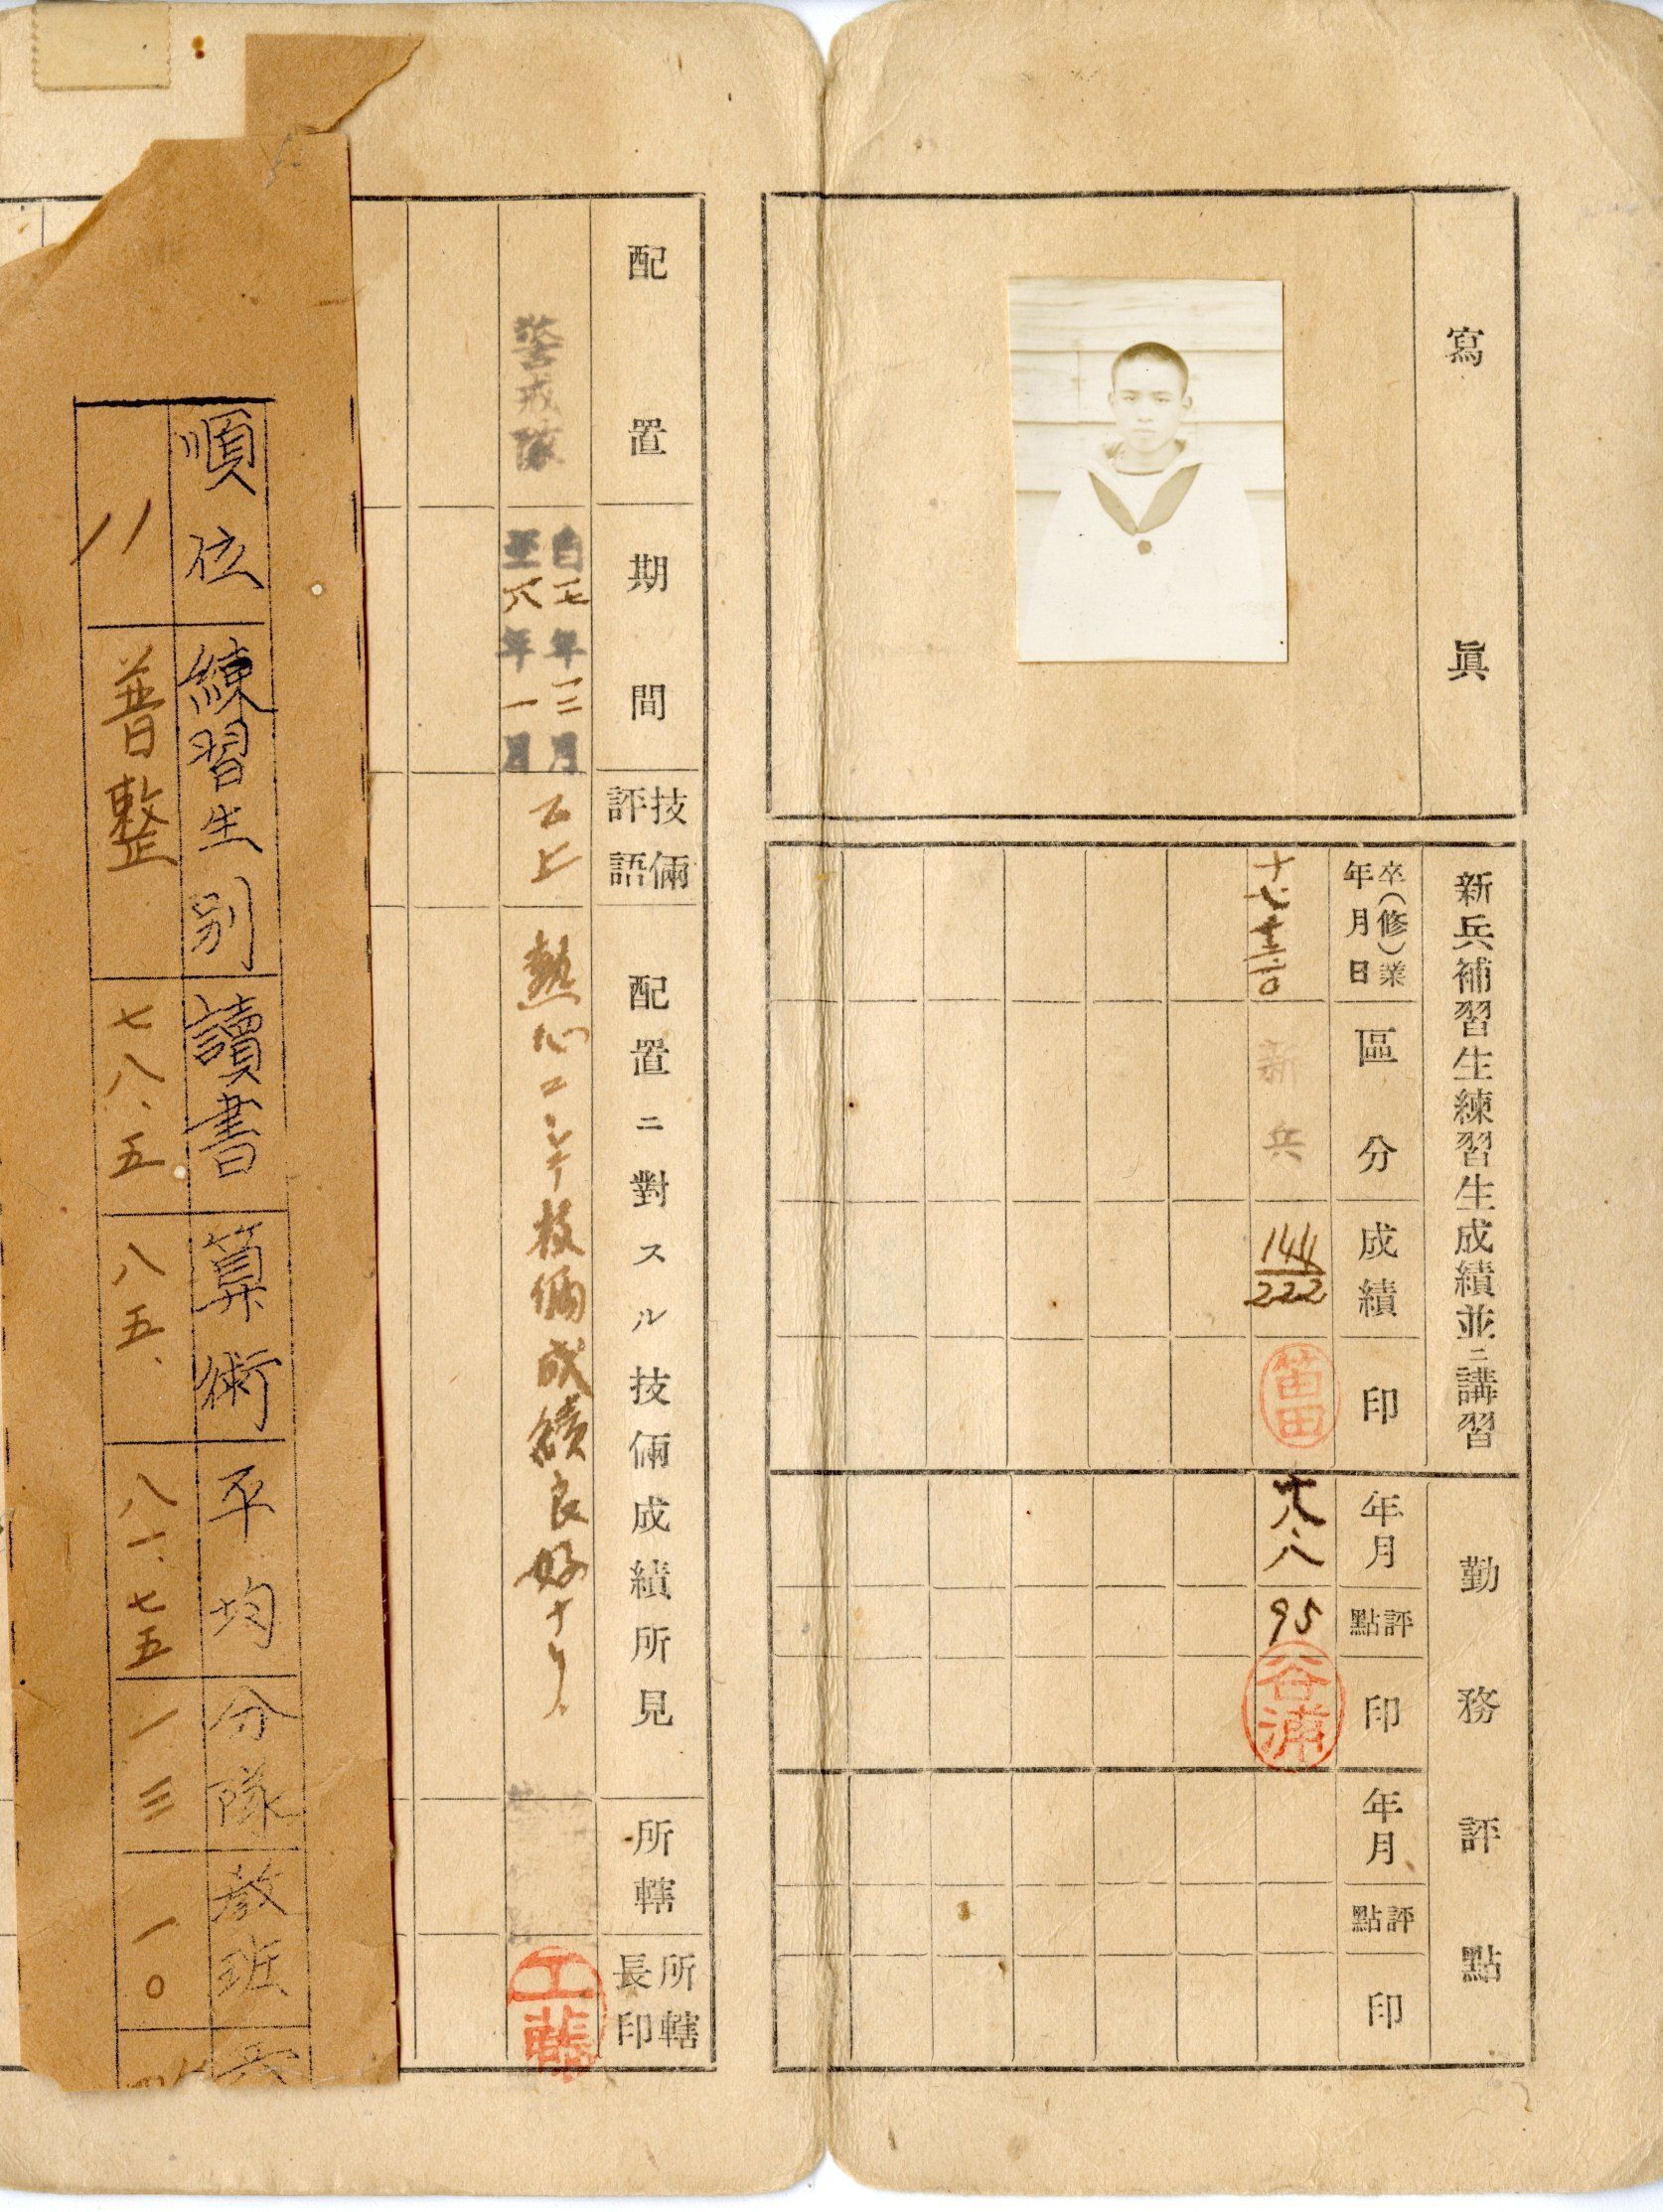 寫眞
新兵補習生練習生成績並ニ講習
卒(修)業年月日
區分
成績
印
新兵
144
222
笛田
勤務評點
年月
評點
印
年月
評點
印
八.八
95
谷浦
配置
期間
技倆評語
配置ニ對スル技倆成績所見
所轄
所轄長印
警戒隊
自一七年三月
至一八年一月
乙上
熱心ニシテ技倆成績良好ナリ.
工藤
順位
練習生別
讀書
算術
平均
分隊
敎班
兵
一一
普整
七八.五
八五.
八一.七五
一三
一〇